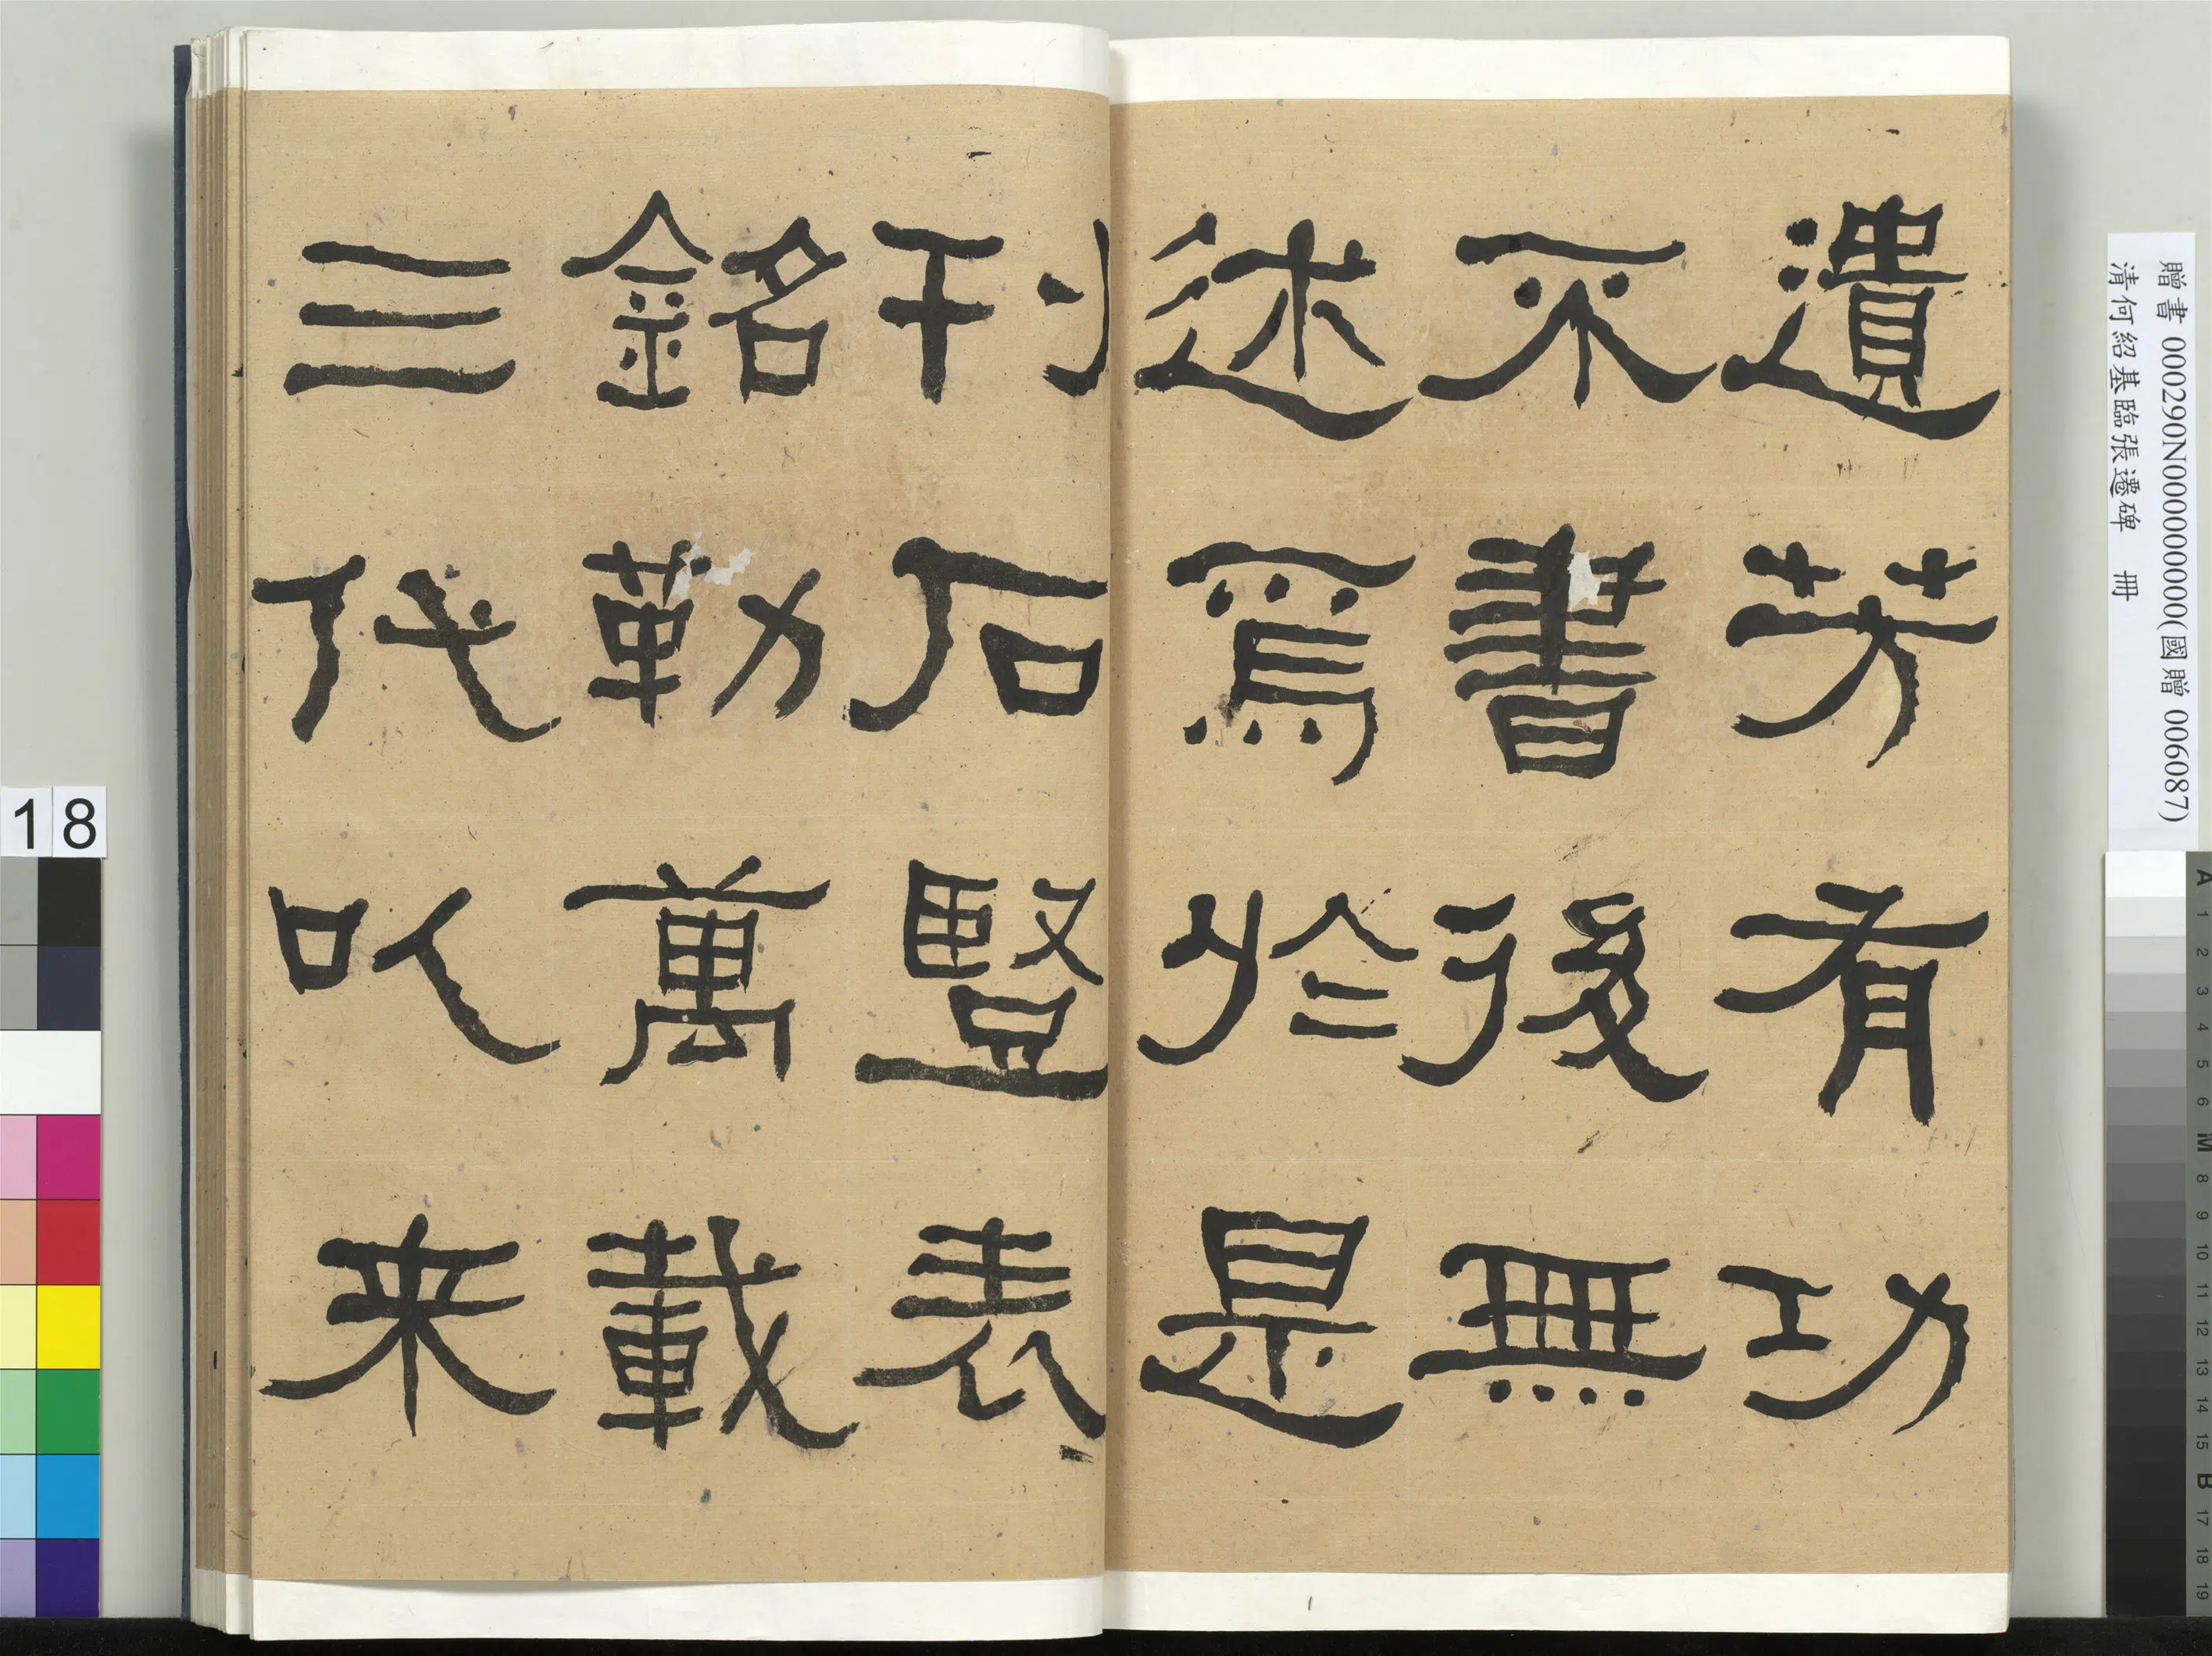 遺芳有功
不書後無
述焉於是
刊石豎表
銘勒萬載
三代以来
贈書 000290N000000000(國贈 006087)
清何紹基臨張遷碑 冊
18
A 1 2 3 4 5 6 M 8 9 10 11 12 13 14 15 B 17 18 19